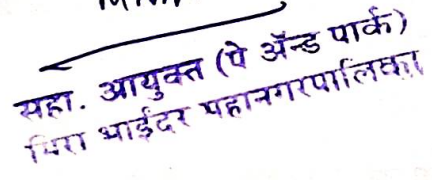 सहा. आयुक्त (पे ॲन्ड पार्क)
मिरा भाईंदर महानगरपालिका